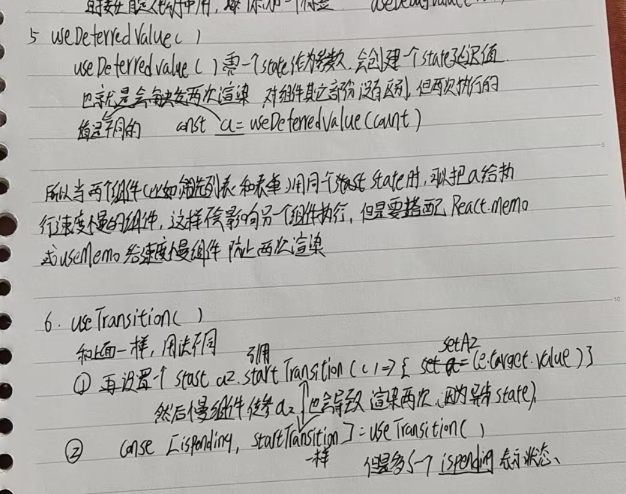 直接在自定义钩子中用, 添加一个标签 useDebugValue(
5 useDeferredValue()
useDeferredValue() 需一个state作为参数, 会创建一个state延迟值
也就是会触发两次渲染 对组件其它部分没有区别, 但两次执行的
值是不同的 const a = useDeferredValue(count)
所以当两个组件(比如筛选列表和表单)用同一个 state 时, 可以把a给执
行速度慢的组件, 这样不会影响另一个组件执行, 但是要搭配 React.memo
或useMemo 给速度慢组件 防止两次渲染
6. useTransition()
和上面一样, 用法不同
引用 setA2
① 再设置一个 stast a2. startTransition(()=>{ =(e.target.value)}
然后慢组件传参a2 也会导致渲染两次(因为异步state)
② conse [ispending, startTransition]=useTransition()
一样 但是多了一个 ispending 表示状态、